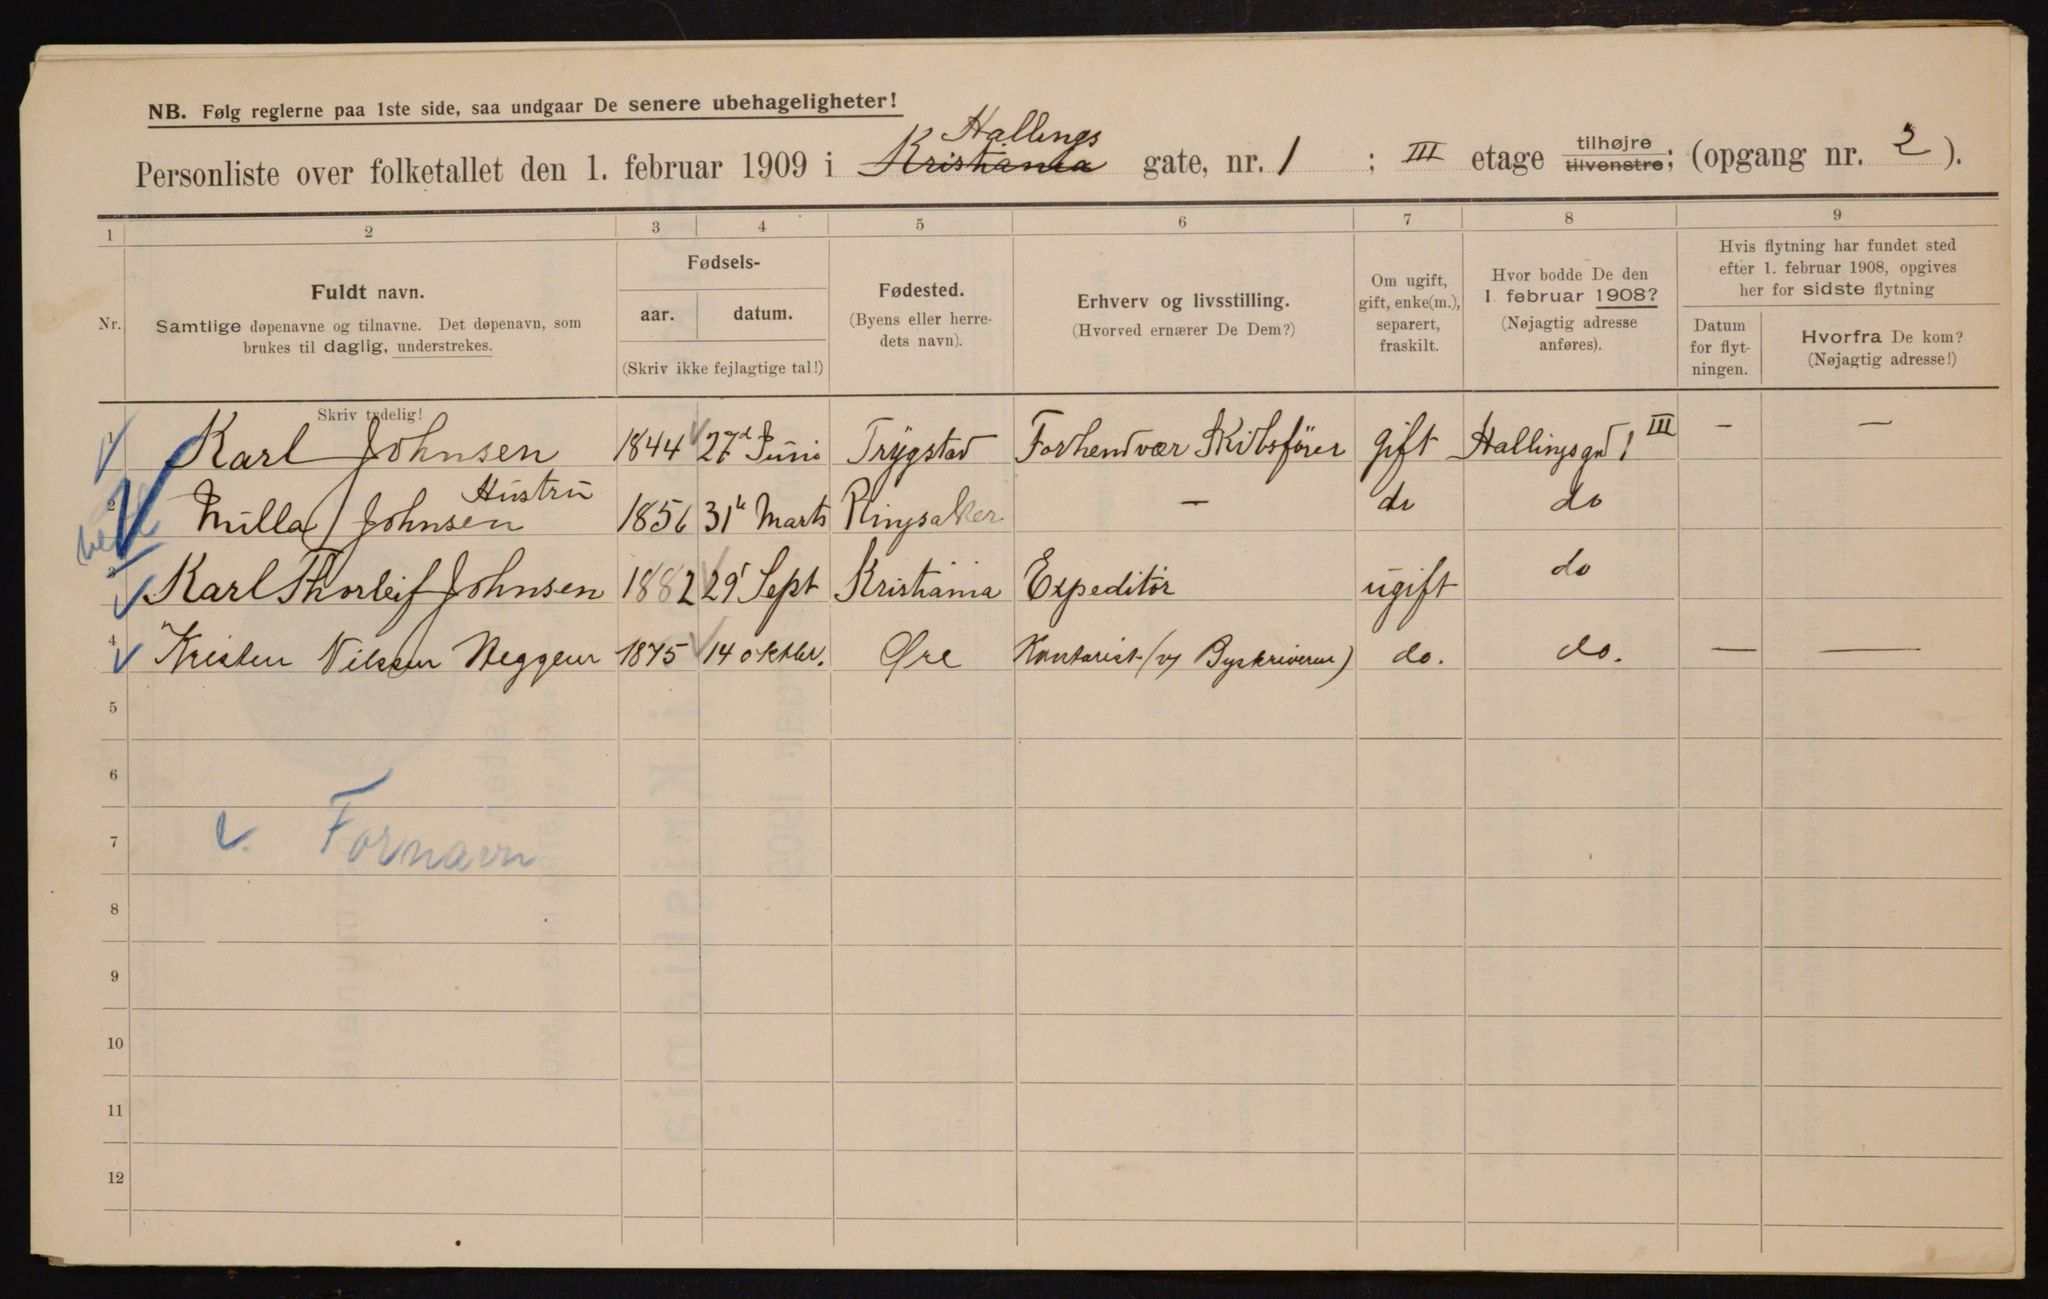 NB. Følg reglerne paa 1ste side, saa undgaar De senere ubehageligheter!
Hallings
Personliste over folketallet den 1. februar 1909 i Kristiania gate, nr. 1 ; III etage tilhøjre tilvenstre; (opgang nr. 2 ).
1 2 3 4 5 6 7 8 9
Nr.
Fuldt navn.
Samtlige døpenavne og tilnavne. Det døpenavn, som
brukes til daglig, understrekes.
Skriv tydelig!
Fødsels-
aar. datum.
(Skriv ikke fejlagtige tal!)
Fødested.
(Byens eller herre-
dets navn).
Erhverv og livsstilling.
(Hvorved ernærer De Dem?)
Om ugift,
gift, enke(m.),
separert,
fraskilt.
Hvor bodde De den
1 februar 1908?
(Nøjagtig adresse
anføres).
Hvis flytning har fundet sted
efter 1. februar 1908, opgives
her for sidste flytning
Datum
for flyt-
ningen.
Hvorfra De kom?
(Nøjagtig adresse!)
1 Karl Johnsen 1844 27d Juni Trygstad Forhendvær Skibsfører gift Hallingsgd 1 III — —
Hustru
2 Milla Johnsen 1856 31 Marts Ringsaker — do do
3 Karl Thorleif Johnsen 1882 29 Sept Kristiania Expeditør ugift do
4 Kristen Nilssen Heggem 1875 14 oktbr. Øre Kontorist (v/ Byskriveren) do. do. — —
5
6
7 v. Fornavn
8
9
10
11
12